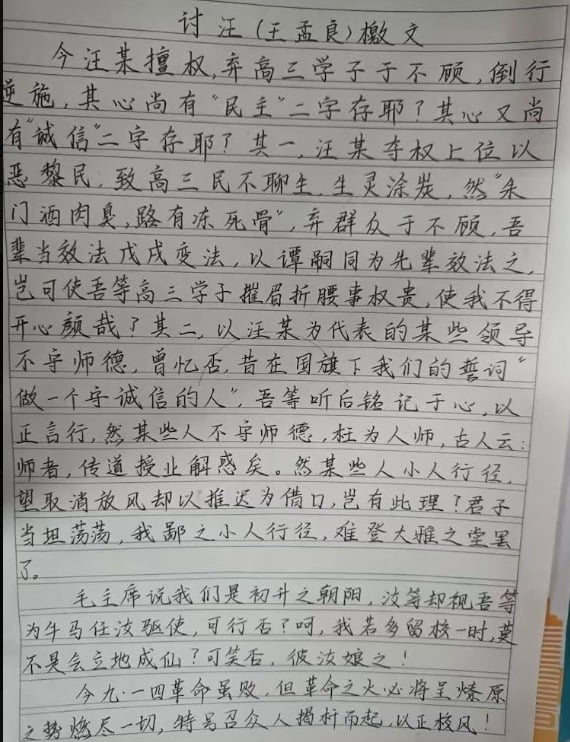 讨汪(王孟良)檄文
今汪某擅权,弃高三学子于不顾,倒行
逆施,其心尚有"民主"二字存耶?其心又尚
有"誠信"二字存耶?其一,汪某夺权上位以
恶黎民,致高三民不聊生,生灵涂炭,然"朱
门酒肉臭,路有冻死骨",弃群众于不顾,吾
辈当效法戊戌变法,以谭嗣同为先辈效法之,
岂可使吾等高三学子摧眉折腰事权贵,使我不得
开心颜哉?其二,以汪某为代表的某些领导
不守师德,曾忆否,昔在国旗下我们的誓词"
做一个守诚信的人",吾等听后铭记于心,以
正言行,然某些人不守师德,枉为人师,古人云:
师者,传道授业解惑矣。然某些人小人行径,
望取消放风却以推迟为借口,岂有此理?君子
当坦荡荡,我鄙之小人行径,难登大雅之堂罢
了。
毛主席说我们是初升之朝阳,汝等却视吾等
为牛马任汝驱使,可行否?呵,我若多留校一时,莫
不是会立地成仙?可笑否,彼汝娘之!
今九·一四革命虽败,但革命之火必将呈燎原
之势燃尽一切,特号召众人揭杆而起,以正校风!